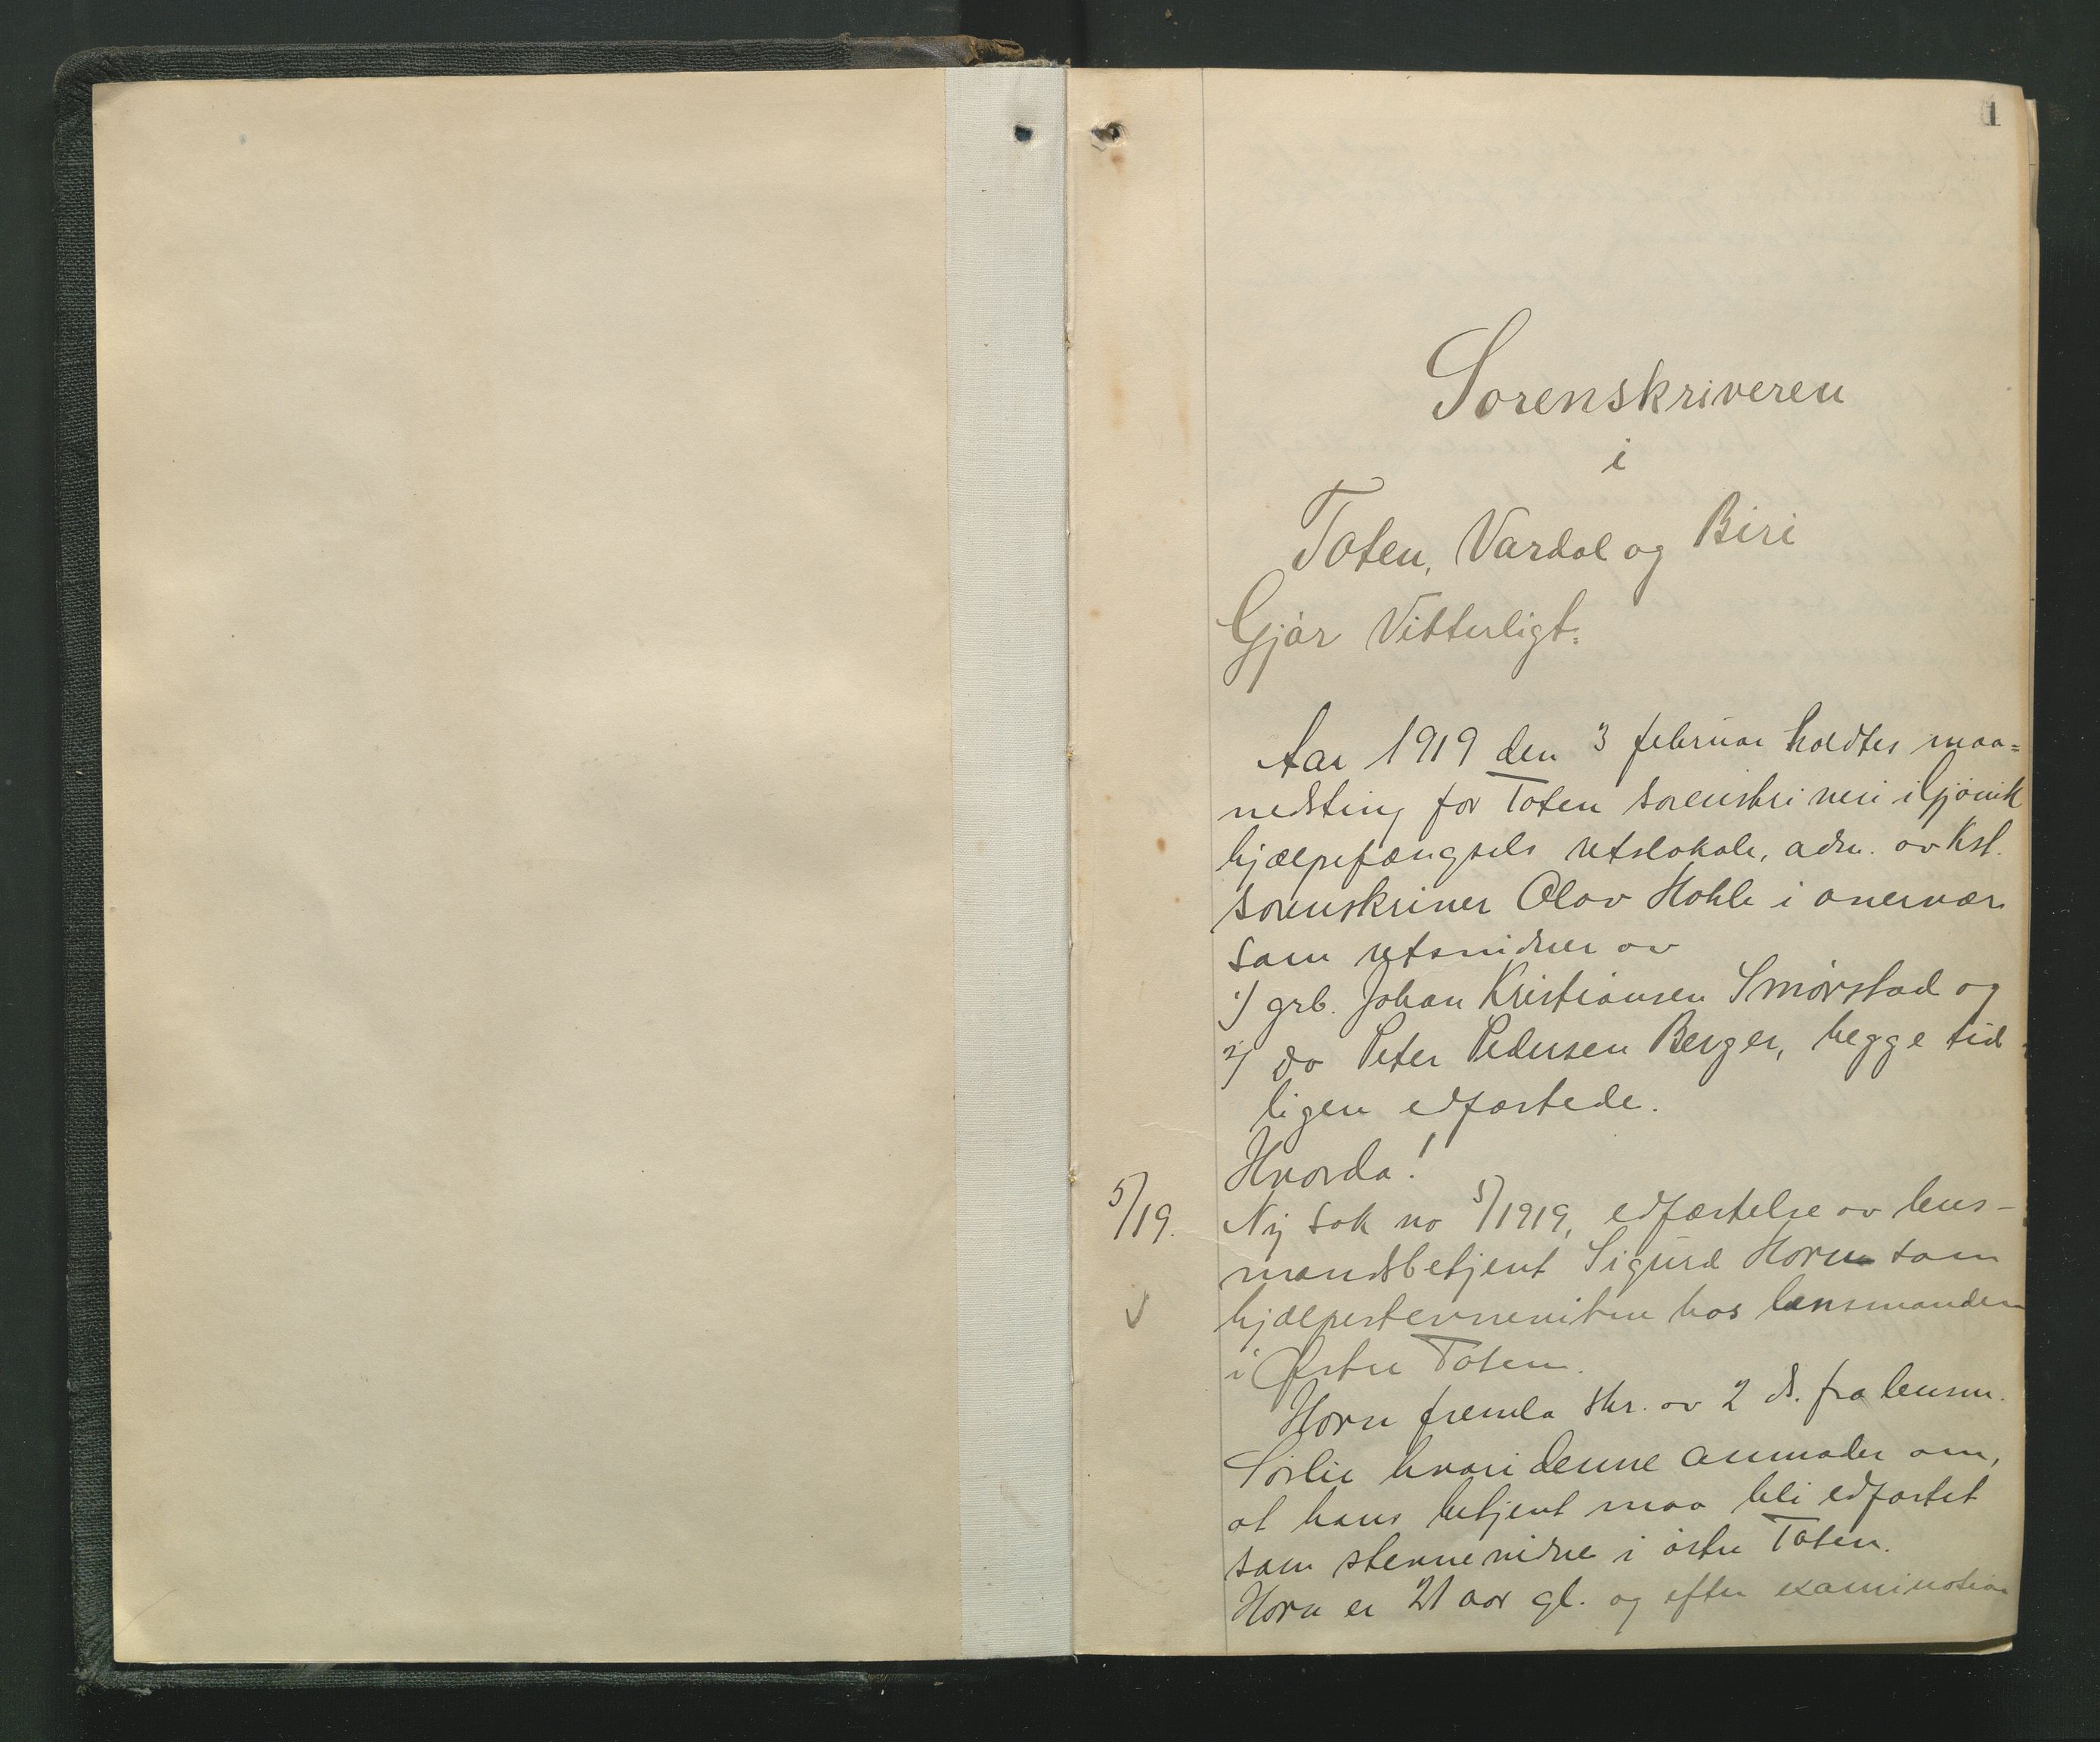 1
Sorenskriveren
i
Toten, Vardal og Biri
Gjör Vitterligt:
Aar 1919 den 3 februar holdtes maa=
nedsting for Toten sorenskriveri i Gjövik
hjælpefængsels retslokale, adm. av kst.
sorenskriver Olav Hohle i overvær
som retsvidner av
1) grb. Johan Kristiansen Smörstad og
2) do Peter Pedersen Berger, begge tid-
ligen edfæstede.
Hvorda!
5/19. Ny sak no 5/1919, edfæstelse av lens-
mandsbetjent Sigurd Horn som
hjælpestevnevitne hos lensmanden
i Østre Toten.
Horn fremla skr. av 2 ds. fra lensm.
Sörlie hvori denne anmoder om,
at hans betjent maa bli edfæstet
som stevnevidne i östre Toten.
Horn er 21 aar gl. og efter examination